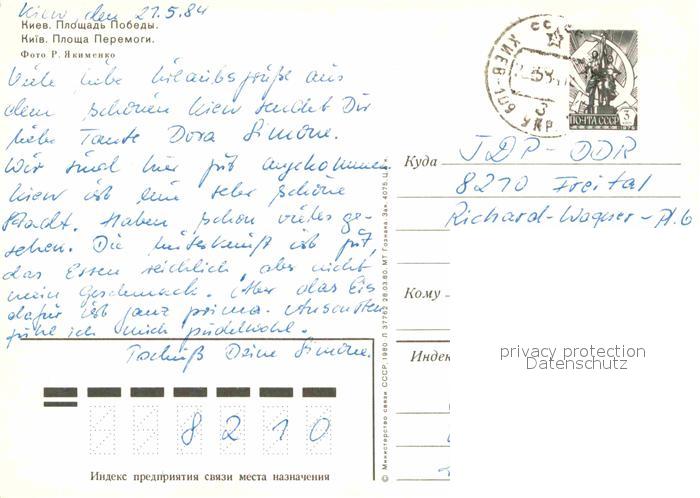 Kiew den 21.5.84
Киев. Площадь Победы.
Київ. Площа Перемоги.
Фото Р. Якименко
Viele liebe Urlaubsgrüße aus
dem schönen Kiew sendet Dir
liebe Tante Dora Simone.
Wir sind hier gut angekommen.
Kiew ist eine sehr schöne
Stadt. Haben schon vieles ge-
sehen. Die Unterkunft ist gut,
das Essen reichlich, aber nicht
mein Geschmack. Aber das Eis
dafür ist ganz prima. Ansonsten
fühle ich mich pudelwohl.
Tschüß Deine Simone.
СССР
КИЕВ
УКР.
ПОЧТА СССР 3
Куда
DDR
8210 Freital
Richard-Wagner-Pl. 6
Кому
Индек
privacy protection
Datenschutz
8 2 1 0
Индекс предприятия связи места назначения
© Министерство связи СССР, 1980. Л 37762 28.03.80. МТ Гознака. Зак. 4075. Ц.